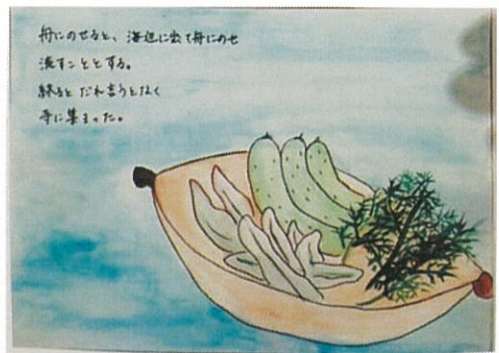 舟にのせると、海辺に出て舟にのせ
流すこととする。
終ると だれ言うとなく
寺に集まった。